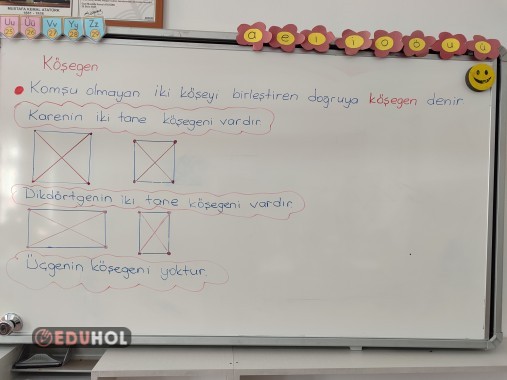 MUSTAFA KEMAL ATATÜRK
Uu Üü Vv Yy Zz
25 26 27 28 29
a e ı i o ö u ü
Köşegen
Komşu olmayan iki köşeyi birleştiren doğruya köşegen denir
Karenin iki tane köşegeni vardır
Dikdörtgenin iki tane köşegeni vardır
Üçgenin köşegeni yoktur.
EDUHOL